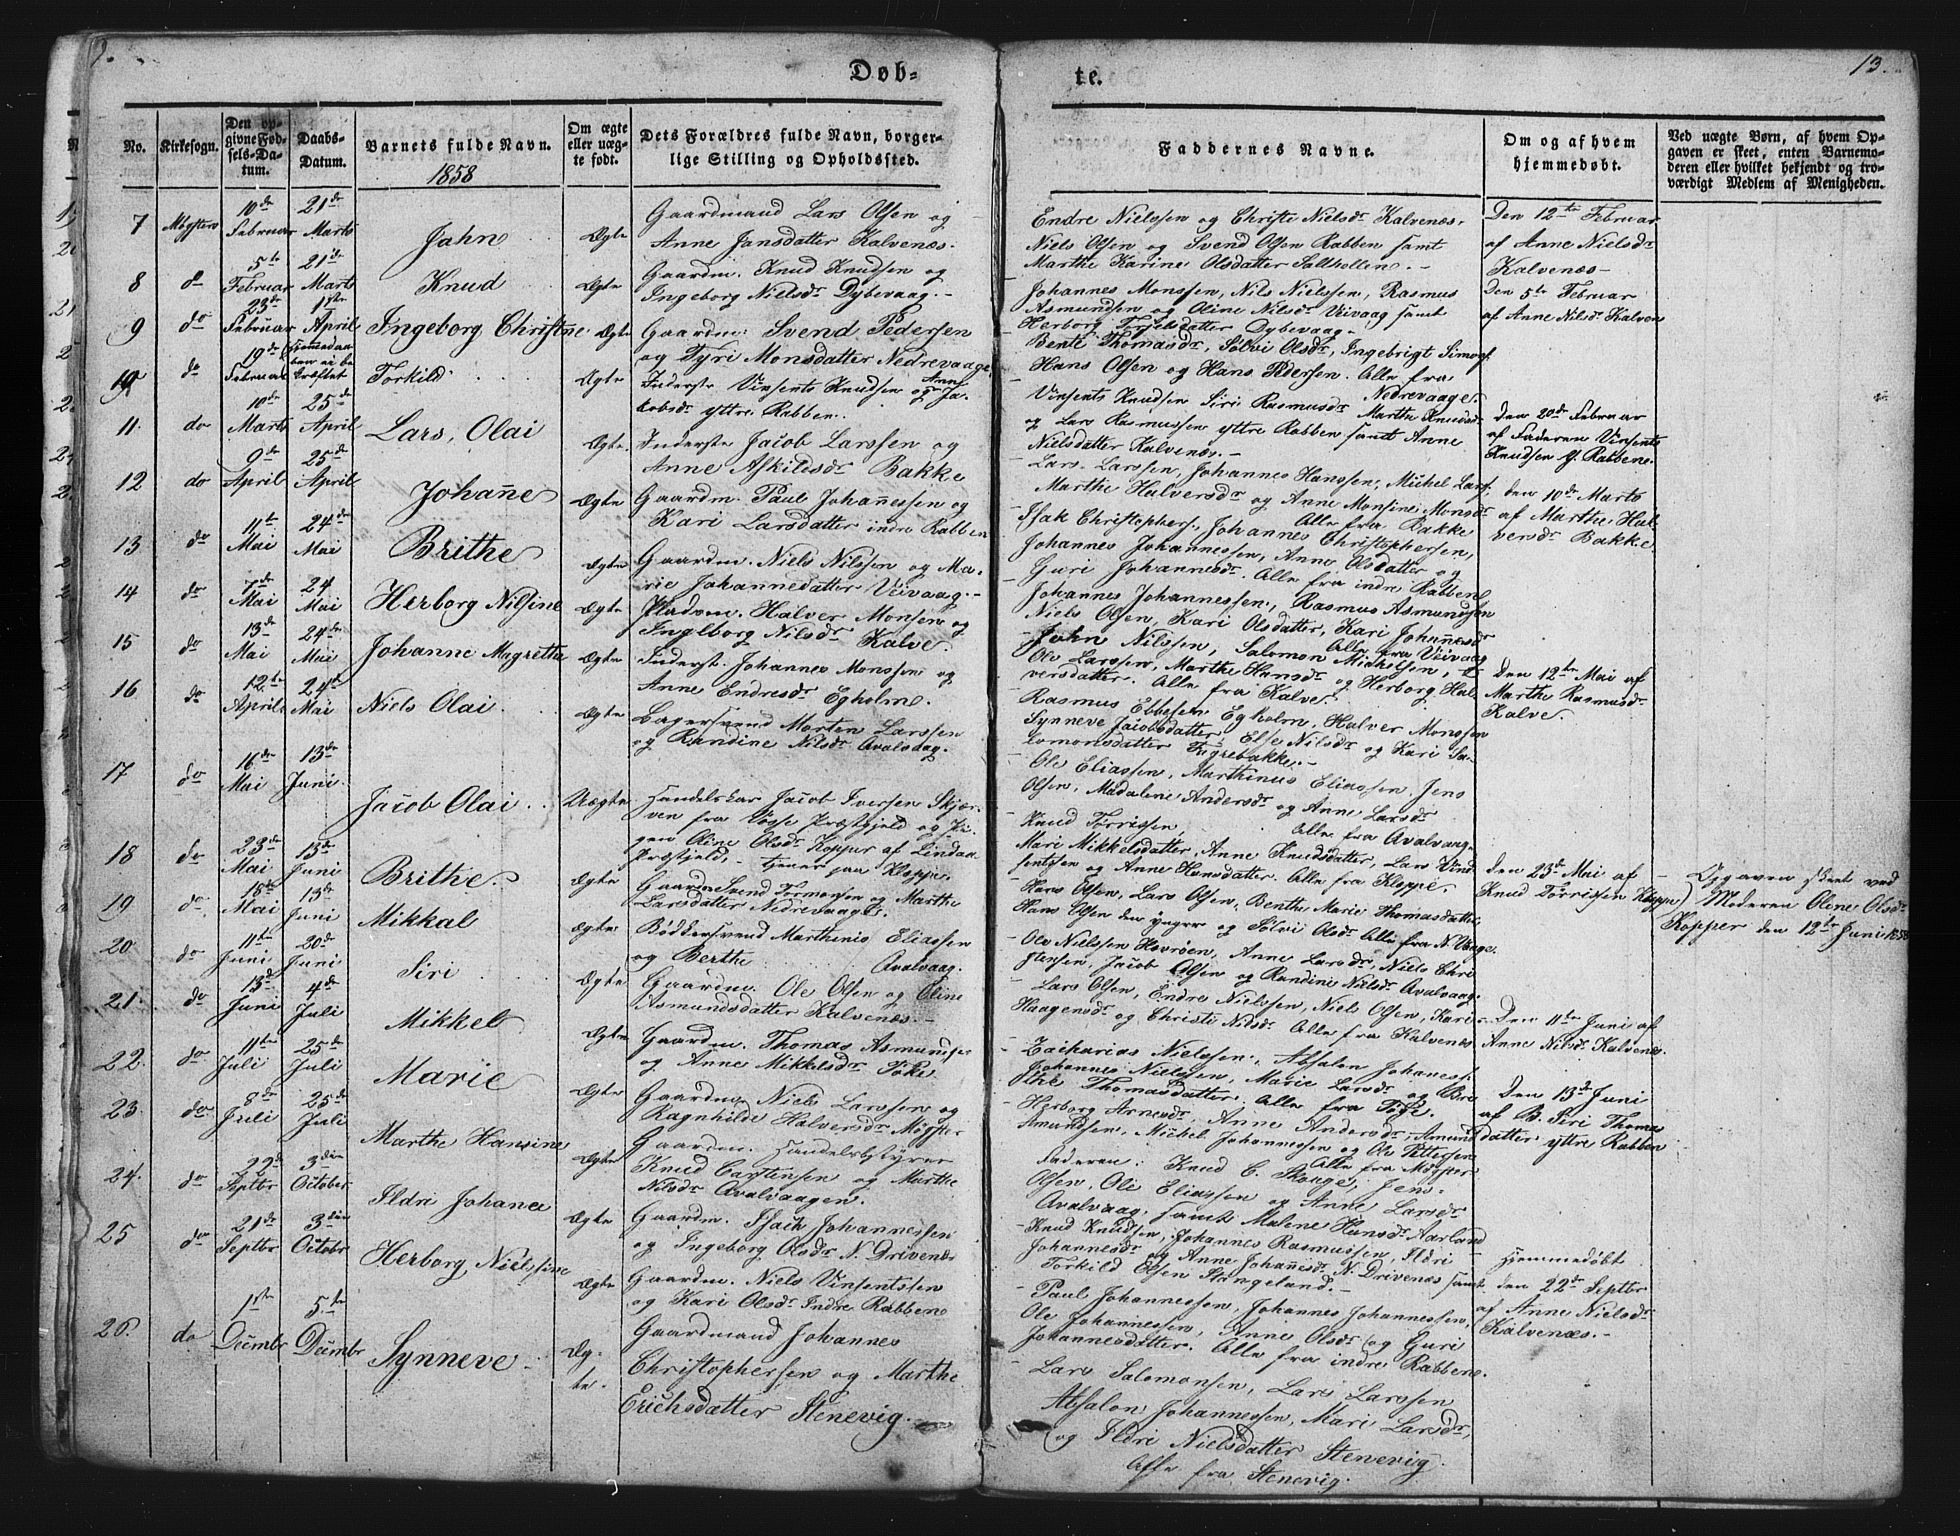 Døb-
te.
13.
No.
Kirkesogn.
Den op-
givne Fød-
sels-Da-
tum.
Daabs-
Datum.
Barnets fulde Navn.
1858
Om ægte
eller uæg-
te født.
Dets Forældres fulde Navn, borger-
lige Stilling og Opholdssted.
Faddernes Navne.
Om og af hvem
hjemmedøbt.
Ved uægte Børn, af hvem Op-
gaven er skeet, enten Barnemo-
deren eller hvilket bekjendt og tro-
værdigt Medlem af Menigheden.
7
10de Februar
21de Marts
Jahn
Ægte
Gaardmand Lars Olsen og
Anne Jansdatter Kalvenæs.
Endre Nielssen og Christi Nielsdr Kalvenæs,
Niels Olsen og Svend Olsen Rabben samt
Marthe Karine Olsdatter Salthellen.
Den 12te Februar
af Anne Nielsdr
Kalvenæs
8
do
5te Februar
21de Marts
Knud
Ægte
Gaardm. Knud Knudsen og
Ingeborg Nielsdr Dybevaag.
Johannes Monssen, Nils Nielssen, Rasmus
Asmundsen og Oline Nilsdr Veivaag samt
Herborg Torgelsdatter Dybevaag
Den 5te Februar
af Anne Nilsdr Kalven
9
do
23de Februar
1ste April
Ingeborg Christine
Ægte
Gaardm. Svend Pedersen
og Tyri Monsdatter Nedrevaage
Bente Thomasdr, Sølvi Olsdr, Ingebrigt Simos.
Hans Olsen og Hans Pedersen. Alle fra
Nedrevaage.
10
do
19de Februar
Torkild
Ægte
Inderste Vinsents Knudsen og Anne Ja-
kobsdr yttre Rabben.
Vinsents Knudsen Siri Rasmusdr Marthe Knudsdr
og Lars Rasmussen yttre Rabben samt Anne
Nielsdatter Kalvenæs.
Den 20de Februar
af Faderen Vinsents
Knudsen Y. Rabbene.
11.
do
10de Marts
25de April
Lars, Olai
Ægte.
Inderste Jacob Larssen og
Anne Askildsdr Bakke
Lars Larssen, Johannes Hanssen, Michel Lars.
Marthe Halversdr og Anne Monsine Monsdr
Alle fra Bakke
den 10de Marts
af Marthe Hal-
versdr Bakke.
12
do
9de April
25de April
Johanne
Ægte
Gaardm. Paul Johannessen og
Kari Larsdatter indre Rabben
Isak Christophers., Johannes Christophersen,
Johannes Johannessen, Anne Olsdatter og
Guri Johannesdr. Alle fra indre Rabbene
13
do
11te Mai
24de Mai
Brithe
Ægte
Gaardm. Niels Nilssen og Ma-
rie Johannedatter Veivaag.
Johannes Johannessen, Rasmus Asmundsen
Niels Olsen, Kari Olsdatter, Kari Johannesdr
Alle fra Veivaag
14
do
7de Mai
24 Mai
Herborg Nilsine
Ægte
Pladsm. Halver Monsen og
Ingeborg Nilsdr Kalve.
John Nilssen, Salomon Michelsen,
Ole Larssen, Marthe Hansdr og Herborg Hal-
versdatter. Alle fra Kalve.
15
do
13de Mai
24de Mai
Johanne Magretha
Ægte
Inderst. Johannes Monssen og
Anne Endresdr Egholm.
Rasmus Ebbesen Egholm, Halver Monssen
Synneve Jacobsdatter, Else Nilsdr og Kari Sa-
lomonsdatter
Den 12te Mai af
Marthe Rasmusdr
Kalve.
16
do
12te April
24de Mai
Niels Olai
Ægte
Bagersvend Morten Larssen
og Randine Nilsdr Avalsvag.
Ole Eliassen, Marthinus Eliassen, Jens
Olsen, Madalene Andersdr og Anne Larsdr
Alle fra Avalvaag
17
do
16de Mai
13de Juni
Jacob Olai
Uægte
Handelskar Jacob Iversen Skjær-
ven fra Vosse Præstgjeld og Pi-
gen Oline Olsdr Kopper af Lindaas
Præstgjeld, tjener paa Kleppe.
Knud Torrissen,
Mari Mikkelsdatter, Anne Knudsdatter, Lars Vind-
sentsen og Anne Hansdatter. Alle fra Kleppe.
Den 23de Mai af
Knud Torrissen Kleppe
Opgaven skeet ved
Moderen Oline Olsdr
Kopper den 12te Juni 1858
18
do
23de Mai
13de Juni
Brithe
Ægte
Gaardm Svend Tormonsen og Marthe
Larsdatter Nedrevaage.
Hans Olsen, Lars Olsen, Benthe Marie Thomasdatter
Hans Olsen den yngre og Sølvi Olsdr. Alle fra N. Vaage.
19
do
15de Mai
13de Juni
Mikkal
Ægte
Bødkersvend Marthinis Eliassen
og Berthe Avalvaag.
Ole Nielssen Hovröen, Anne Larsdr, Niels Chri
stensen, Jacob Olsen og Randini Nielsdr Avalvaag
20
do
11te Juni
20de Juni
Siri
Ægte
Gaardm. Ole Olsen og Oline
Asmundsdatter Kalvenæs.
Lars Olsen, Endre Nielssen, Niels Olsen, Kari
Haagensdr og Christi Nilsdr Alle fra Kalvenæs
Den 11te Juni af
Anne Nilsdr Kalvenæs.
21.
do
13de Juni
4de Juli
Mikkel
Ægte
Gaardm. Thomas Asmundsen
og Anne Mikkelsdr Tøke
Zacharias Nielssen, Absalon Johaness.
Johannes Nielssen, Marie Larsdr og Beri
the Thomasdatter. Alle fra Tøke.
Den 13de Juni
af B. Siri Thomas
datter ytre Rabben
22.
do
11te Juli
25de Juli
Marie
Ægte
Gaardm. Niels Larssen og
Ragnhilde Halversdr Møgster
Herborg Arnesdr, Anne Andersdr, Amund
Amundsen, Michel Johannessen og Ole Pettersen
Alle fra Møgster
23.
do
8de Juli
25de Juli
Marthe Hansine
Ægte
Gaardm. Handelsbstyrer
Knud Carstensen og Marthe
Nilsdr Avalvaagen.
Faderen: Knud C. Skauge, Jens
Olsen, Ole Eliassen og Anne Larsdr
Avalvaag, samt Malene Hansdr Aarland
24.
do
22de Septbr
3die October
Ildri Johanne
Ægte
Gaardm. Isach Johannessen
og Ingeborg Olsdr N. Drivenæs
Knud Knudsen, Johannes Rasmussen, Ildri
Johannesdr og Anne Johannesdr N. Drivenæs samt
Torkild Olsen Stangeland.
Hjemmedøbt
den 22de Septbr
af Anne Nielsdr
Kalvenæs.
25
do
21de Septbr
3die Octobr
Herborg Nielsine
Ægte
Gaardm. Niels Vinsentssen
og Kari Olsdr Indre Rabbene
Paul Johannessen, Johannes Johannessen,
Ole Johannessen, Anne Olsdr og Guri
Johannesdatter. Alle fra indre Rabbene.
26.
do
1ste Decmbr
5te Decmbr
Synneve
Æg-
te.
Gaardmand Johannes
Christophersen og Marthe
Erichsdatter Stenevig.
Lars Salomonsen, Lars Larssen
Absalon Johannessen, Mari Larsdr,
og Ildri Nielsdatter Stenevig.
Alle fra Stenevig.